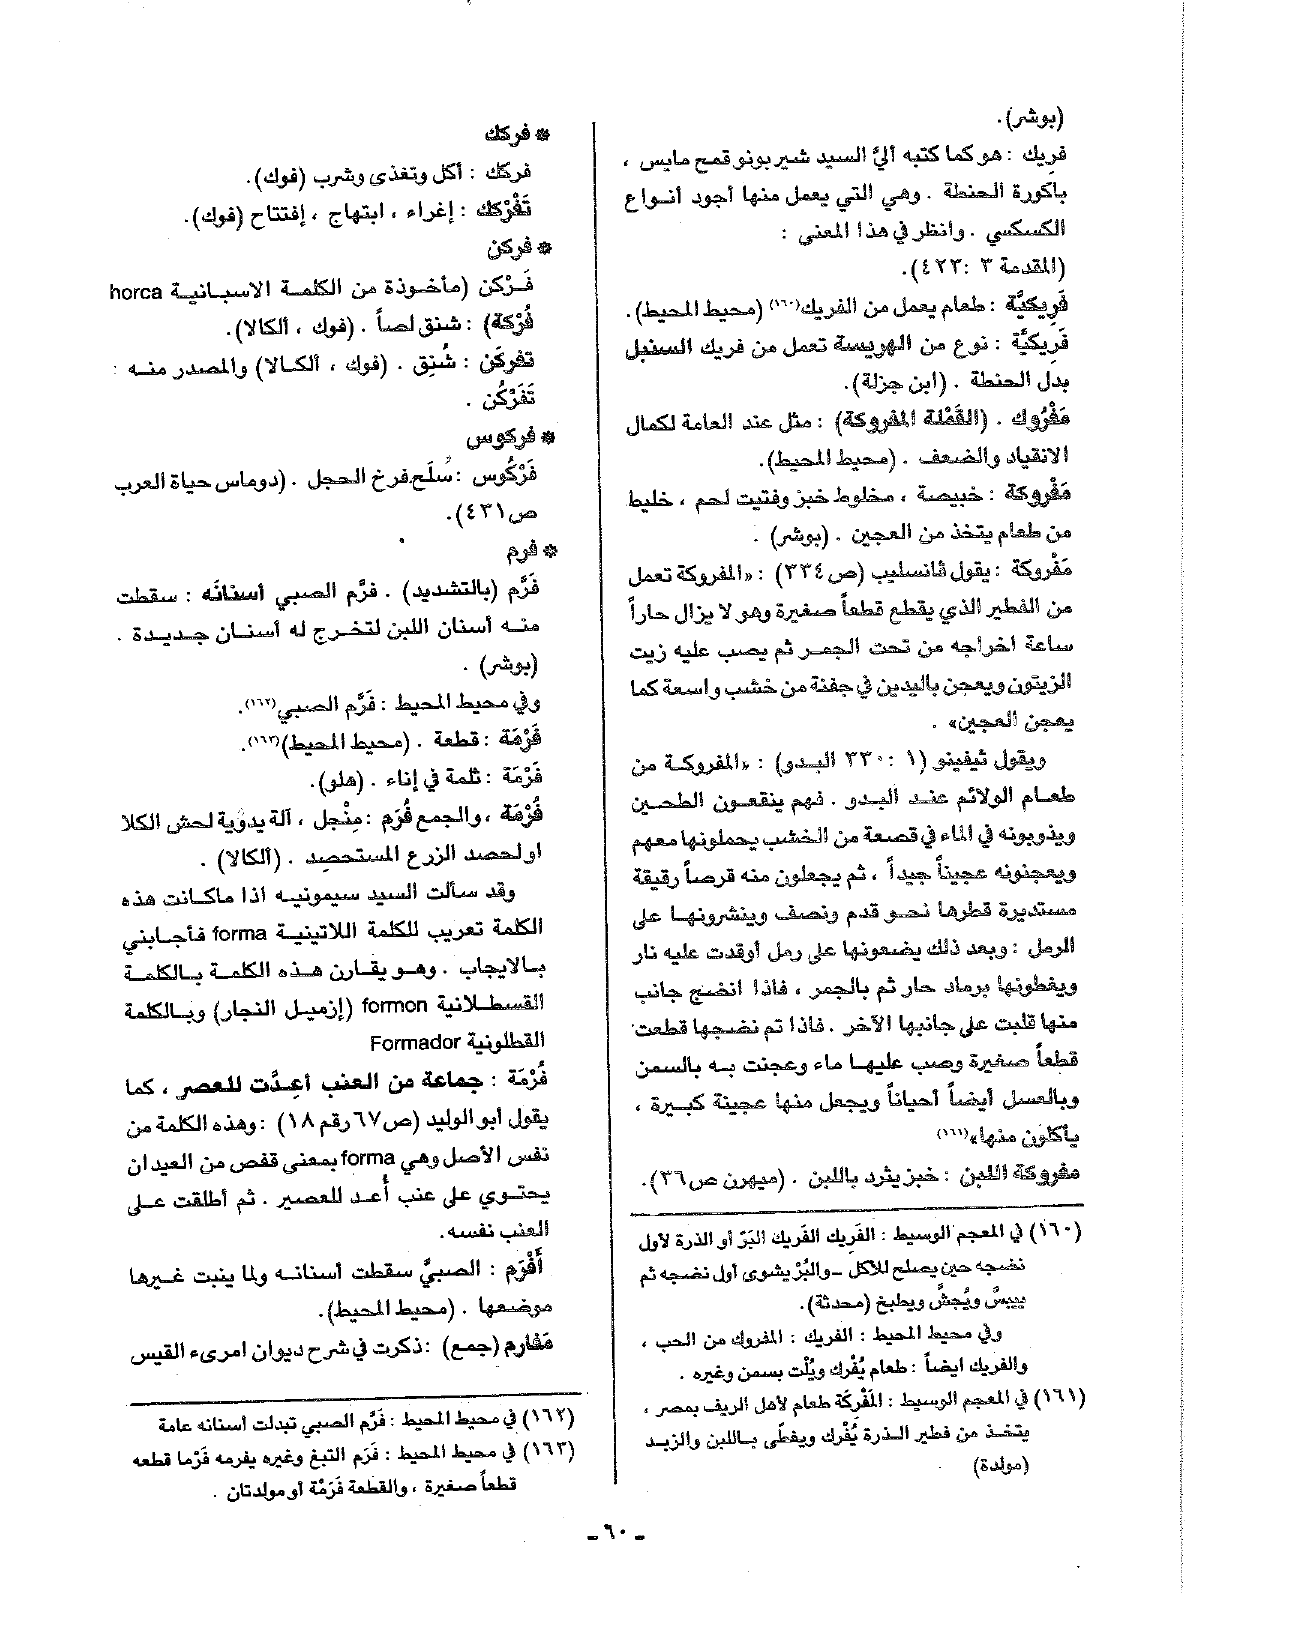 (بوشر).
فريك : هو كما كتبه اليّ السيد شير بونو قمح مايس ،
باكورة الحنطة . وهي التي يعمل منها أجود أنواع
الكسكسي . وانظر في هذا المعنى :
(المقدمة ٣ :٤٢٣).
فَرِيكيَّة : طعام يعمل من الفريك(١٦٠) (محيط المحيط).
فَرِيكيَّة : نوع من الهريسة تعمل من فريك السنبل
بدل الحنطة . (ابن جزلة).
مَفْرُوك . (القَمْلة المفروكة) : مثل عند العامة لكمال
الانقياد والضعف . (محيط المحيط).
مَفْرُوكة : خبيصة ، مخلوط خبز وفتيت لحم ، خليط
من طعام يتخذ من العجين . (بوشر) .
مَفْروكة : يقول ڤانسليب (ص ٣٣٤) : «المفروكة تعمل
من الفطير الذي يقطع قطعاً صغيرة وهو لا يزال حاراً
ساعة اخراجه من تحت الجمر ثم يصب عليه زيت
الزيتون ويعجن باليدين في جفنة من خشب واسعة كما
يعجن العجين» .
ويقول ثيفينو (١ : ٣٣٠ البدو) : «المفروكة من
طعام الولائم عند البدو . فهم ينقعون الطحين
ويذوبونه في الماء في قصعة من الخشب يحملونها معهم
ويعجنونه عجيناً جيداً ، ثم يجعلون منه قرصاً رقيقة
مستديرة قطرها نحو قدم ونصف وينشرونها على
الرمل : وبعد ذلك يضعونها على رمل أوقدت عليه نار
ويغطونها برماد حار ثم بالجمر ، فاذا انضج جانب
منها قلبت على جانبها الآخر . فاذا تم نضجها قطعت
قطعاً صغيرة وصب عليها ماء وعجنت به بالسمن
وبالعسل أيضاً أحياناً ويجعل منها عجينة كبيرة ،
يأكلون منها»(١٦١)
مفروكة اللبن : خبز يثرد باللبن . (ميهرن ص٣٦).
(١٦٠) في المعجم الوسيط : الفَرِيك الفَريك البَرّ أو الذرة لأول
نضجه حين يصلح للأكل - والبُرْ يشوى أول نضجه ثم
ييبسُ ويُجشُ ويطبخ (محدثة).
وفي محيط المحيط : الفريك : المفروك من الحب ،
والفريك ايضاً : طعام يُفْرك ويُلْت بسمن وغيره .
(١٦١) في المعجم الوسيط : المَفْركَة طعام لأهل الريف بمصر ،
يتخذ من فطير الذرة يُفْرك ويغطَى باللبن والزبد
(مولدة)
* فركك
فركك : أكل وتغذى وشرب (فوك).
تَفْرْكك : إغراء ، ابتهاج ، إفتتاح (فوك).
* فركن
فَرْكن (مأخوذة من الكلمة الاسبانية horca
فُرْكة) : شنق لصاً . (فوك ، ألكالا).
تفركَن : شُنِق . (فوك ، ألكالا) والمصدر منه :
تَفَرْكُن .
* فركوس
فَرْكُوس : سُلَح فرخ الحجل . (دوماس حياة العرب
ص٤٣١).
* فرم
فَرَّم (بالتشديد) . فرَّم الصبي أسنانَه : سقطت
منه أسنان اللبن لتخرج له أسنان جديدة .
(بوشر) .
وفي محيط المحيط : فَرَّم الصبي(١٦٢).
فَرْمَة : قطعة . (محيط المحيط)(١٦٣).
فَرْمَة : ثلمة في إناء . (هلو).
فُرْمَة ، والجمع فُرَم : مِنْجل ، آلة يدوية لحش الكلا
او لحصد الزرع المستحصِد . (ألكالا) .
وقد سألت السيد سيمونيه اذا ماكانت هذه
الكلمة تعريب للكلمة اللاتينية forma فأجابني
بالايجاب . وهو يقارن هذه الكلمة بالكلمة
القسطلانية formon (إزميل النجار) وبالكلمة
القطلونية Formador
فُرْمَة : جماعة من العنب أعِدَّت للعصر ، كما
يقول أبو الوليد (ص٦٧ رقم ١٨) : وهذه الكلمة من
نفس الأصل وهي forma بمعنى قفص من العيدان
يحتوي على عنب أُعد للعصير . ثم أطلقت على
العنب نفسه.
أَفْرَم : الصبيُّ سقطت أسنانه ولما ينبت غيرها
موضعها . (محيط المحيط).
مَفارم (جمع) : ذكرت في شرح ديوان امرىء القيس
(١٦٢) في محيط المحيط : فَرَّم الصبي تبدلت أسنانه عامة
(١٦٣) في محيط المحيط : فَرَم التبغ وغيره يفرمه فَرْما قطعه
قطعاً صغيرة ، والقطعة فَرَمْة أو مولدتان .
ـ ٦٠ ـ